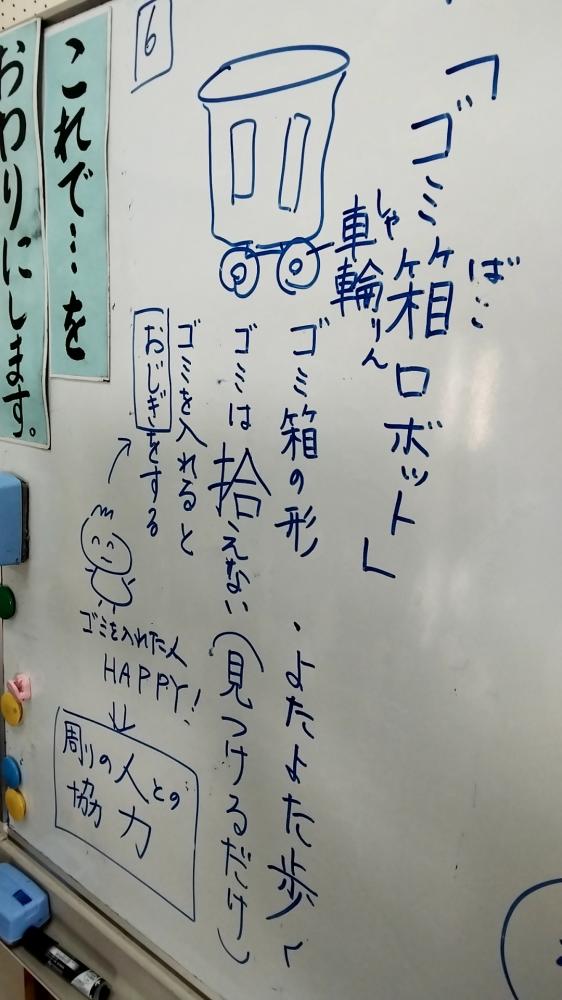 「ゴミ箱ロボット」
ばこ
車輪
しゃりん
ゴミ箱の形
・よたよた歩く
ゴミは拾えない(見つけるだけ)
ゴミを入れると
おじぎをする
ゴミを入れた人
HAPPY!
周の人との
協力
6
これで…を
おわりにします。